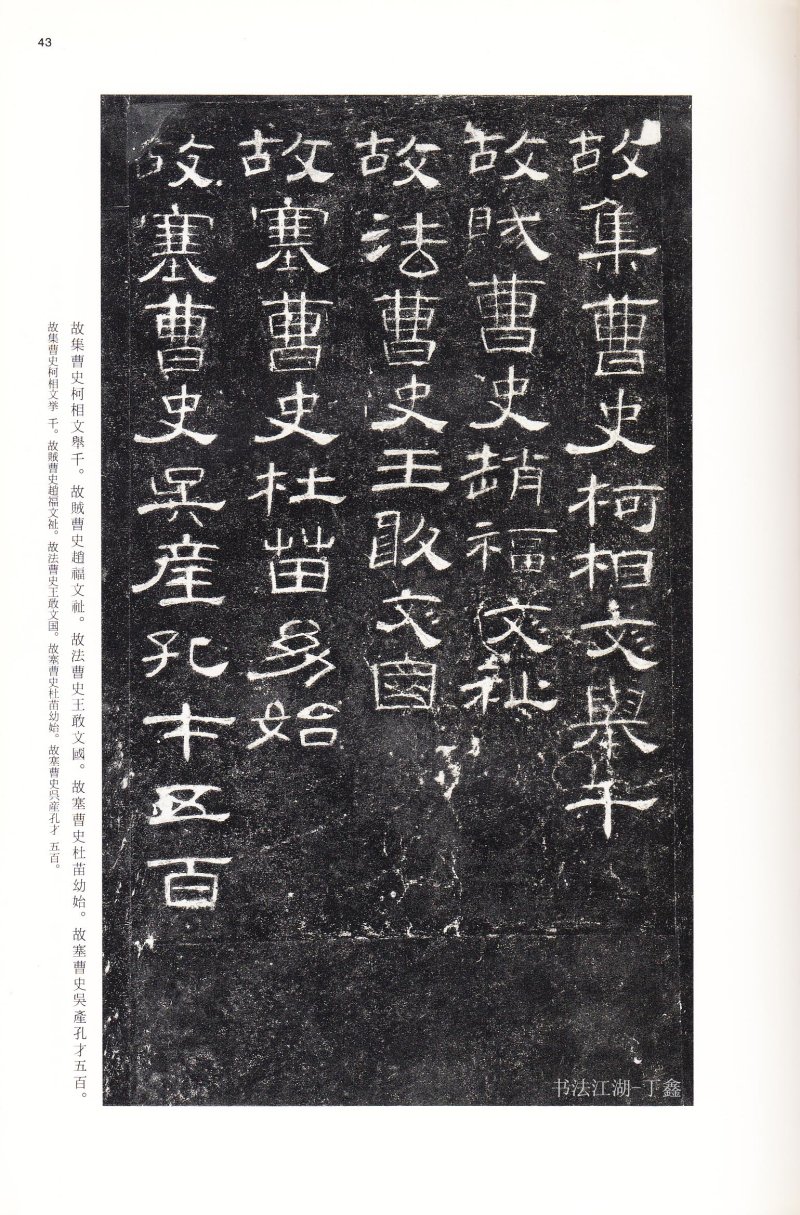 43
故集曹史柯相文舉千
故賊曹史趙福文祉
故法曹史王敢文國
故塞曹史杜苗幼始
故塞曹史吳產孔才五百
故集曹史柯相文舉千。故賊曹史趙福文祉。故法曹史王敢文國。故塞曹史杜苗幼始。故塞曹史吳產孔才五百。
故集曹史柯相文挙 千。故賊曹史趙福文祉。故法曹史王敢文国。故塞曹史杜苗幼始。故塞曹史呉産孔才 五百。
书法江湖-丁鑫